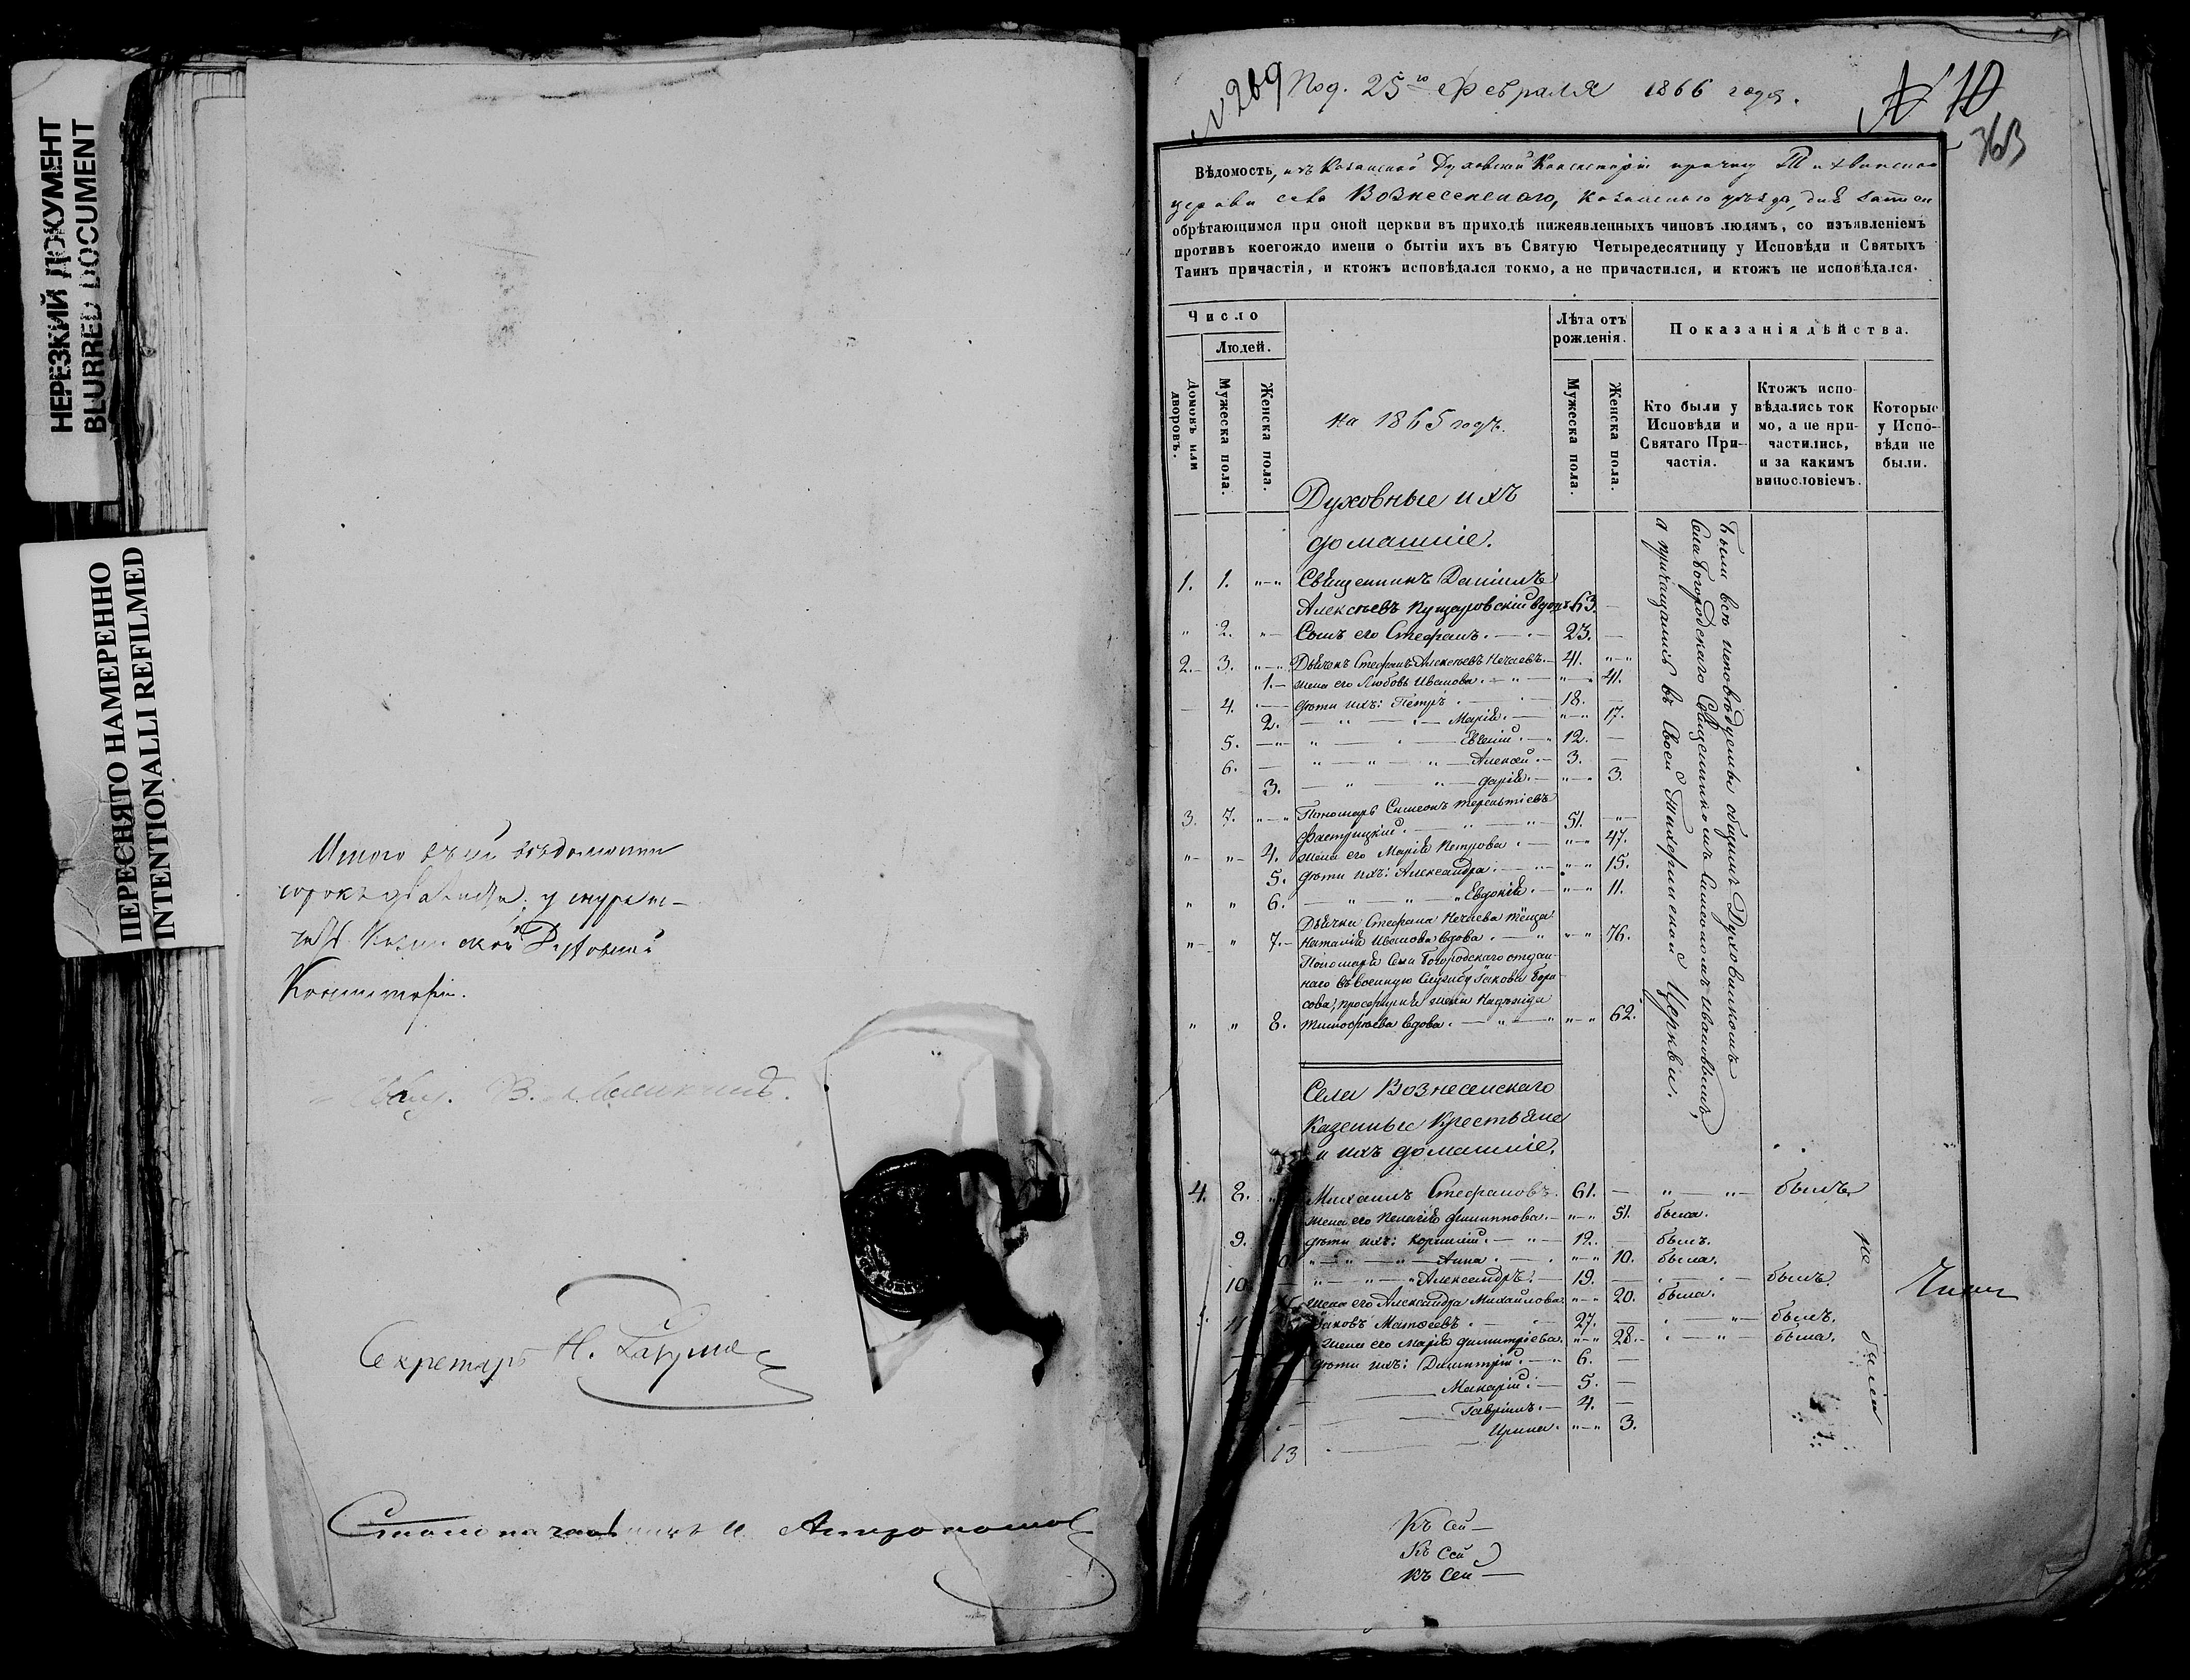 НЕРЕЗКИЙ ДОКУМЕНТ
BLURRED DOCUMENT
ПЕРЕСНЯТО НАМЕРЕННО
INTENTIONALLI REFILMED
Итого въ сей вѣдомости
сорокъ
Казанской Духовной
Консисторіи.
Секретарь Н.
Столоначальникъ
N 269 Под. 25го Февраля 1866 года.
N 10
Вѣдомость, изъ Казанской Духовной Консисторіи причту Тихвинской
церкви села Вознесенскаго, Казанскаго уѣзда, для записи
обрѣтающимся при оной церкви въ приходѣ нижеявленныхъ чиновъ людямъ, со изъявленіемъ
противъ коегождо имени о бытіи ихъ въ Святую Четыредесятницу у Исповѣди и Святыхъ
Таинъ причастія, и ктожъ исповѣдался токмо, а не причастился, и ктожъ не исповѣдался.
Число
Людей.
Домовъ или дворовъ.
Мужеска пола.
Женска пола.
на 1865 годъ.
Лѣта отъ рожденія.
Мужеска пола.
Женска пола.
Показанія дѣйства.
Кто были у Исповѣди и Святаго При-частія.
Ктожъ испо-вѣдались ток мо, а не при-частились, и за какимъ винословіемъ.
Которые у Испо-вѣди не были.
Духовные и ихъ
домашніе.
1. 1. Священникъ Даніилъ
Алексѣевъ Пущаровскій вдовъ 63.
2. Сынъ его Стефанъ. 23.
2. 3. Дьячокъ Стефанъ Алексѣевъ Нечаевъ. 41.
1. жена его Любовь Иванова. 41.
4. дѣти ихъ: Петръ. 18.
2. Марія. 17.
5. Евгеній. 12.
6. Алексѣй. 3.
3. Дарія. 3.
3. 7. Пономарь Симеонъ Терентіевъ
51.
4. жена его Марія Петрова. 47.
5. дѣти ихъ: Александра. 15.
6. Евдокія. 11.
Дьячка Стефана Нечаева тёща
7. Наталія Иванова вдова. 76.
Пономаря Села Богородскаго отдан-
наго въ военную службу Іакова Бори-
сова, просфирня жена Надежда
8. Тимофѣева вдова. 62.
Были всѣ исповѣдуемы общимъ Духовникомъ
Села Богородскаго Священникомъ Симеономъ Ивановымъ,
а причащались въ своей Тихвинской Церкви.
Села Вознесенскаго
Казенные Крестьяне
и ихъ домашніе.
4. 8. Михаилъ Стефановъ. 61. былъ
жена его Пелагія Филиппова. 51. была.
9. дѣти ихъ: Корнилій. 12. былъ.
Анна 10. была.
10. Александръ. 19. былъ.
жена его Александра Михайлова. 20. была.
5. 11. Іаковъ Матѳеевъ. 27. былъ.
жена его Марія Димитріева. 28. была.
дѣти ихъ: Димитрій. 6.
Макарій. 5.
Гавріилъ. 4.
13 Ирина. 3.
Къ сей
Къ сей
Къ сей